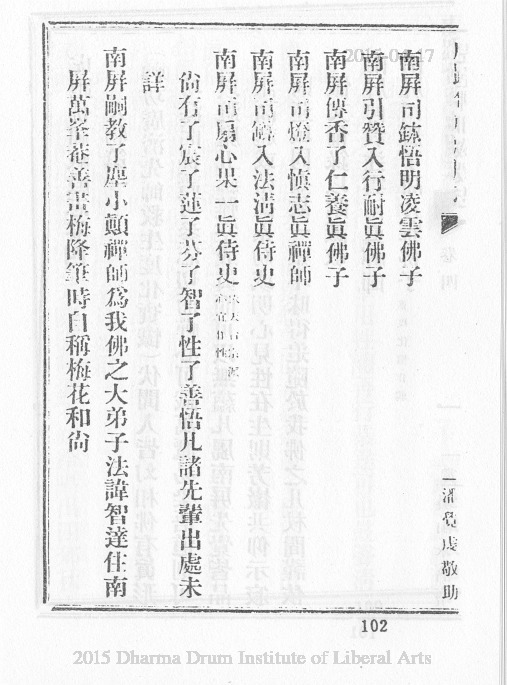 南屏司鉢悟明凌雲佛子
南屏引贊入行耐眞佛子
南屏傳香了仁養眞佛子
南屏司燈入愼志眞禪師
南屏司籌入法淸眞侍史
南屏司扇心果一眞侍史
尙有了宸了蓮了芬了智了性了善悟凡諸先輩出處未
詳
南屏嗣教了塵小顚禪師爲我佛之大弟子法諱智達住南
屏萬峯菴善畫梅降筆時自稱梅花和尙
卷四
敬助
102
2015 Dharma Drum Institute of Liberal Arts